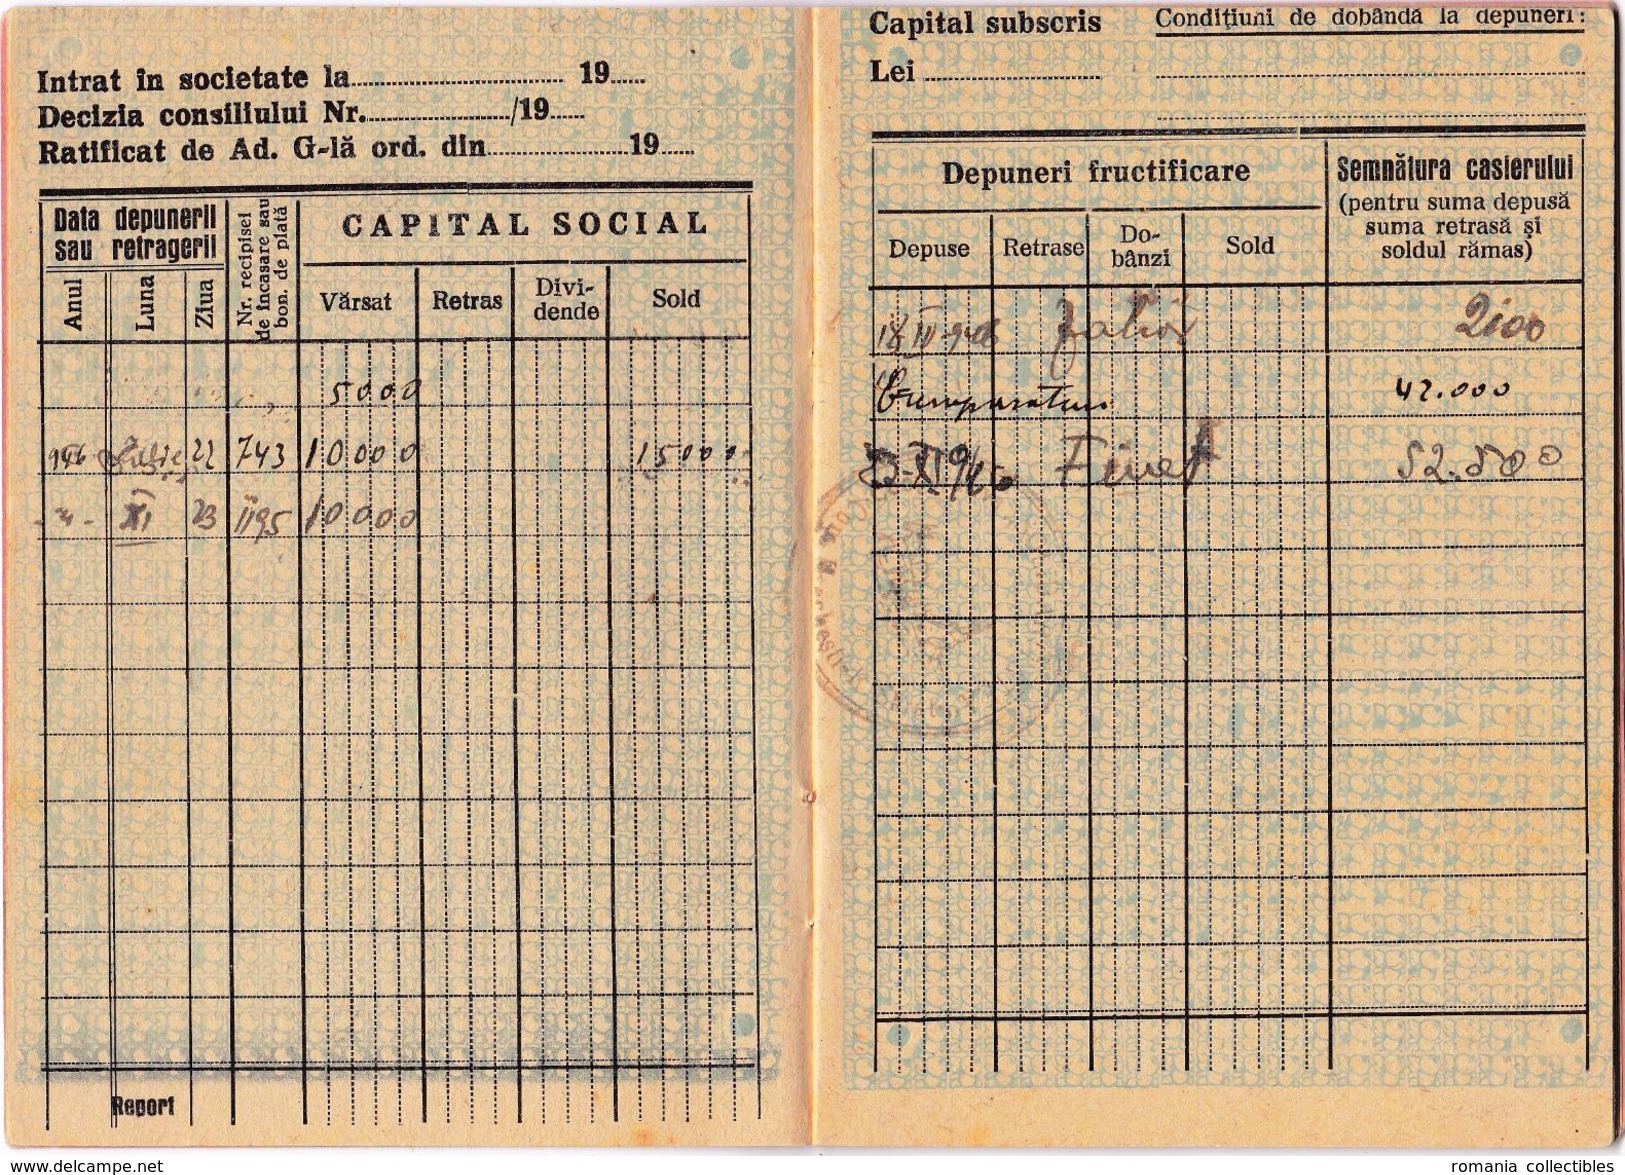 Intrat în societate la.............................. 19......
Decizia consiliului Nr...................../19......
Ratificat de Ad. G-lă ord. din.....................19......
Data depunerii
sau retragerii
Anul
Luna
Ziua
Nr. recipisei
de încasare sau
bon. de plată
CAPITAL SOCIAL
Vărsat
Retras
Divi-
dende
Sold
5000
946 Iulie 22 743 10000 15000
-"- XI 23 1195 10000
Report
Capital subscris
Lei ..........................
Condițiuni de dobândă la depuneri:
Depuneri fructificare
Semnătura casierului
(pentru suma depusă
suma retrasă și
soldul rămas)
Depuse
Retrase
Do-
bânzi
Sold
2100
Cumparaturi 42.000
52.500
www.delcampe.net
romania collectibles